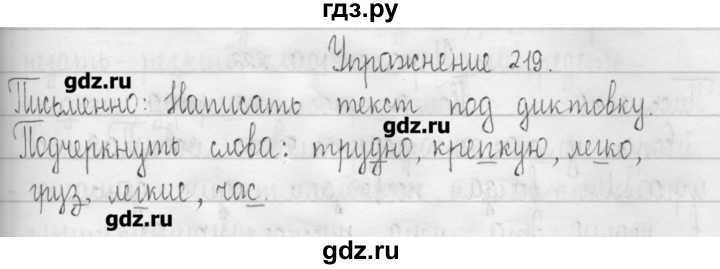 гдз.ру
Упражнение 219.
gdz.ru
Письменно: Написать текст под диктовку.
gdz.ru
Подчеркнуть слова: трудно, крепкую, легко,
груз, легкие, час.
gdz.ru
gdz.ru